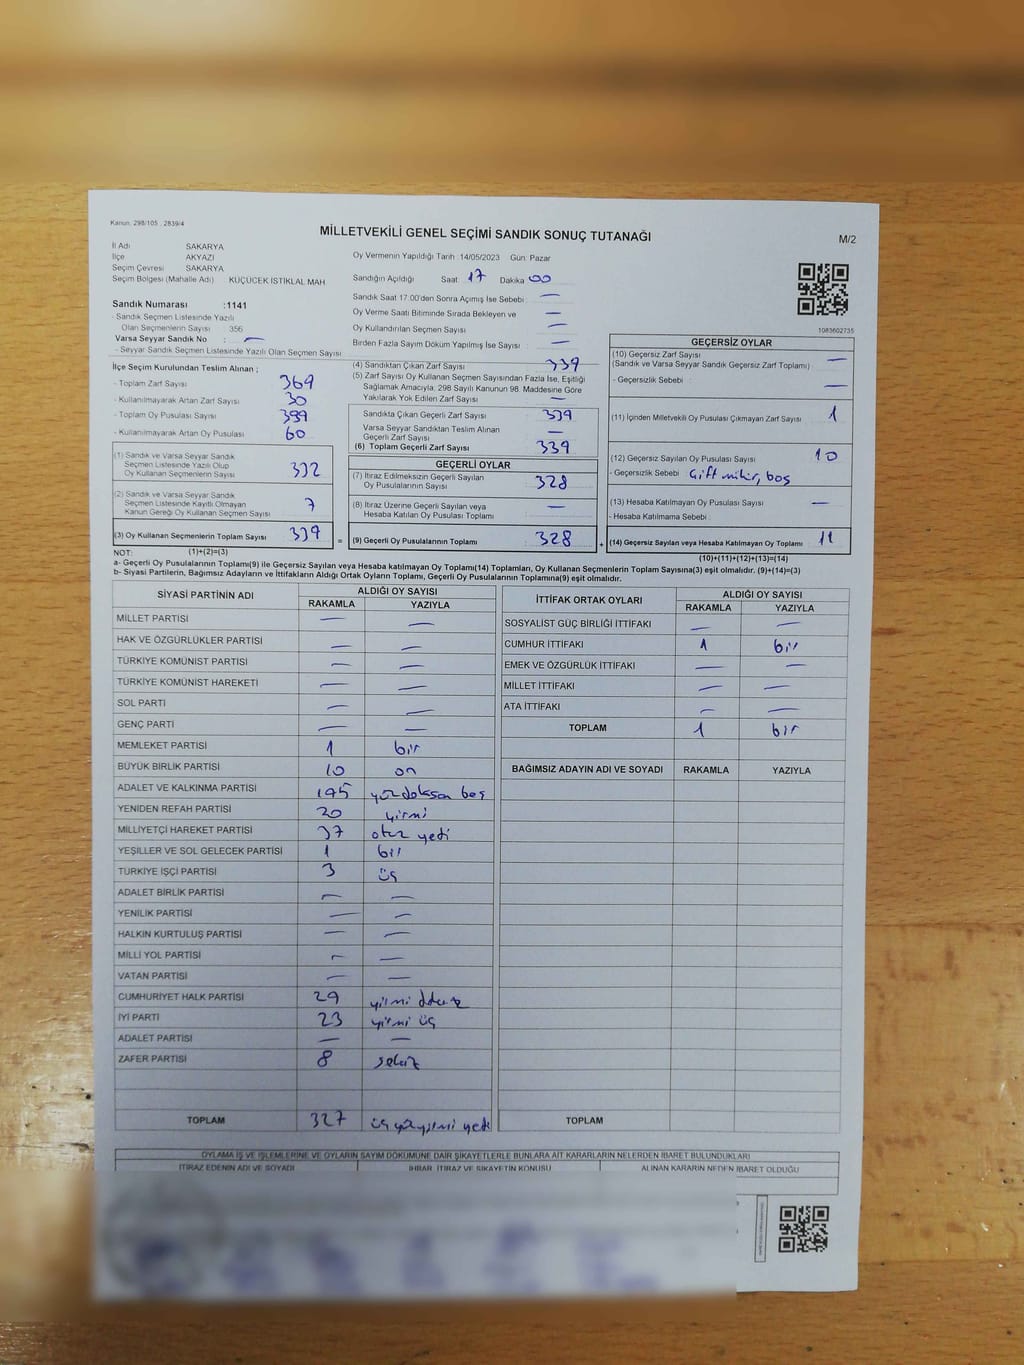 Kanun: 298/105 , 2839/4
MİLLETVEKİLİ GENEL SEÇİMİ SANDIK SONUÇ TUTANAĞI
M/2
İl Adı SAKARYA
İlçe AKYAZI
Seçim Çevresi SAKARYA
Seçim Bölgesi (Mahalle Adı) KÜÇÜCEK İSTİKLAL MAH
Oy Vermenin Yapıldığı Tarih :14/05/2023 Gün: Pazar
Sandığın Açıldığı Saat: 17 Dakika 00
Sandık Saat 17.00'den Sonra Açımış İse Sebebi : —
Oy Verme Saati Bitiminde Sırada Bekleyen ve —
Oy Kullandırılan Seçmen Sayısı —
Birden Fazla Sayım Döküm Yapılmış İse Sayısı : —
Sandık Numarası :1141
- Sandık Seçmen Listesinde Yazılı
Olan Seçmenlerin Sayısı 356
Varsa Seyyar Sandık No : —
- Seyyar Sandık Seçmen Listesinde Yazılı Olan Seçmen Sayısı
İlçe Seçim Kurulundan Teslim Alınan ;
- Toplam Zarf Sayısı 369
- Kullanılmayarak Artan Zarf Sayısı 30
- Toplam Oy Pusulası Sayısı 399
- Kullanılmayarak Artan Oy Pusulası 60
(1) Sandık ve Varsa Seyyar Sandık
Seçmen Listesinde Yazılı Olup
Oy Kullanan Seçmenlerin Sayısı 332
(2) Sandık ve Varsa Seyyar Sandık
Seçmen Listesinde Kayıtlı Olmayan
Kanun Gereği Oy Kullanan Seçmen Sayısı 7
(3) Oy Kullanan Seçmenlerin Toplam Sayısı 339
(1)+(2)=(3)
(4) Sandıktan Çıkan Zarf Sayısı 339
(5) Zarf Sayısı Oy Kullanan Seçmen Sayısından Fazla İse, Eşitliği
Sağlamak Amacıyla, 298 Sayılı Kanunun 98. Maddesine Göre
Yakılarak Yok Edilen Zarf Sayısı —
Sandıkta Çıkan Geçerli Zarf Sayısı 339
Varsa Seyyar Sandıktan Teslim Alınan
Geçerli Zarf Sayısı —
(6) Toplam Geçerli Zarf Sayısı 339
GEÇERLİ OYLAR
(7) İtiraz Edilmeksizin Geçerli Sayılan
Oy Pusulalarının Sayısı 328
(8) İtiraz Üzerine Geçerli Sayılan veya
Hesaba Katılan Oy Pusulası Toplamı —
= (9) Geçerli Oy Pusulalarının Toplamı 328
1083602735
GEÇERSİZ OYLAR
(10) Geçersiz Zarf Sayısı —
(Sandık ve Varsa Seyyar Sandık Geçersiz Zarf Toplamı)
- Geçersizlik Sebebi : —
(11) İçinden Milletvekili Oy Pusulası Çıkmayan Zarf Sayısı 1
(12) Geçersiz Sayılan Oy Pusulası Sayısı 10
- Geçersizlik Sebebi çift mühür, boş
(13) Hesaba Katılmayan Oy Pusulası Sayısı —
- Hesaba Katılmama Sebebi :
+ (14) Geçersiz Sayılan veya Hesaba Katılmayan Oy Toplamı 11
(10)+(11)+(12)+(13)=(14)
NOT:
a- Geçerli Oy Pusulalarının Toplamı(9) ile Geçersiz Sayılan veya Hesaba katılmayan Oy Toplamı(14) Toplamları, Oy Kullanan Seçmenlerin Toplam Sayısına(3) eşit olmalıdır. (9)+(14)=(3)
b- Siyasi Partilerin, Bağımsız Adayların ve İttifakların Aldığı Ortak Oyların Toplamı, Geçerli Oy Pusulalarının Toplamına(9) eşit olmalıdır.
SİYASİ PARTİNİN ADI ALDIĞI OY SAYISI
RAKAMLA YAZIYLA
MİLLET PARTİSİ — —
HAK VE ÖZGÜRLÜKLER PARTİSİ — —
TÜRKİYE KOMÜNİST PARTİSİ — —
TÜRKİYE KOMÜNİST HAREKETİ — —
SOL PARTİ — —
GENÇ PARTİ — —
MEMLEKET PARTİSİ 1 bir
BÜYÜK BİRLİK PARTİSİ 10 on
ADALET VE KALKINMA PARTİSİ 195 yüzdoksan beş
YENİDEN REFAH PARTİSİ 20 yirmi
MİLLİYETÇİ HAREKET PARTİSİ 37 otuz yedi
YEŞİLLER VE SOL GELECEK PARTİSİ 1 bir
TÜRKİYE İŞÇİ PARTİSİ 3 üç
ADALET BİRLİK PARTİSİ — —
YENİLİK PARTİSİ — —
HALKIN KURTULUŞ PARTİSİ — —
MİLLİ YOL PARTİSİ — —
VATAN PARTİSİ — —
CUMHURİYET HALK PARTİSİ 29 yirmi dokuz
İYİ PARTİ 23 yirmi üç
ADALET PARTİSİ — —
ZAFER PARTİSİ 8 sekiz
TOPLAM 327 üç yüzyirmi yedi
İTTİFAK ORTAK OYLARI ALDIĞI OY SAYISI
RAKAMLA YAZIYLA
SOSYALİST GÜÇ BİRLİĞİ İTTİFAKI — —
CUMHUR İTTİFAKI 1 bir
EMEK VE ÖZGÜRLÜK İTTİFAKI — —
MİLLET İTTİFAKI — —
ATA İTTİFAKI — —
TOPLAM 1 bir
BAĞIMSIZ ADAYIN ADI VE SOYADI RAKAMLA YAZIYLA
TOPLAM
OYLAMA İŞ VE İŞLEMLERİNE VE OYLARIN SAYIM DÖKÜMÜNE DAİR ŞİKAYETLERLE BUNLARA AİT KARARLARIN NELERDEN İBARET BULUNDUKLARI
İTİRAZ EDENİN ADI VE SOYADI İHBAR, İTİRAZ VE ŞİKAYETİN KONUSU ALINAN KARARIN NEDEN İBARET OLDUĞU